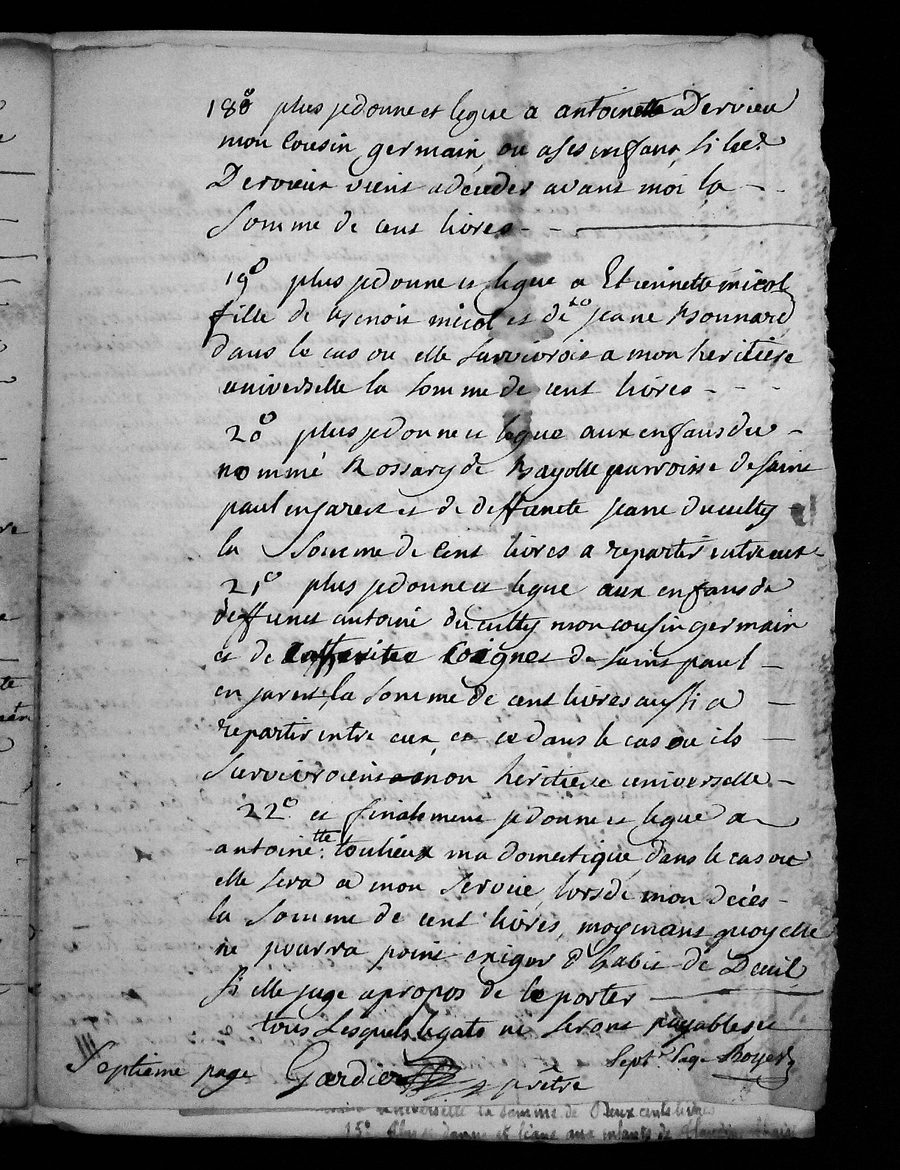 18° plus je donne et legue a antoinette Dervieu
mon Cousin germain, ou a ses enfans si led.
Dervieux vient a déceder avant moi la
Somme de cent livres
19° plus je donne et legue a Etiennette micol
fille de Benoit micol et de jeane Bonnard
dans le cas ou elle survivroit a mon heritiere
universelle la Somme de cent livres
20° plus je donne et legue aux enfans du
nommé Rossary de Bayolle parroisse de saint
paul en jarest et de deffuncte jeane ducultty
la Somme de cent livres a repartir entre eux
21° plus je donne et legue aux enfans de
deffunct antoine ducultty mon cousin germain
et de Coignet de saint paul
en jarest, la Somme de cent livres aussi a
repartir entre eux et ce dans le cas ou ils
Survivroient a mon heritiere universelle
22° et finalement je donne et legue a
antoinette toulieux ma domestique, dans le cas ou
elle sera a mon service, lors de mon décès
la Somme de cent livres, moyenant quoy elle
ne pourra point exiger d'habit de Deuil
si elle juge apropos de le porter
tous Lesquels legats ne seront payables et
Septieme page Gardier prêtre Sept.e page Royer
universelle la somme de Deux cents livres
15° plus je donne et legue aux enfants de